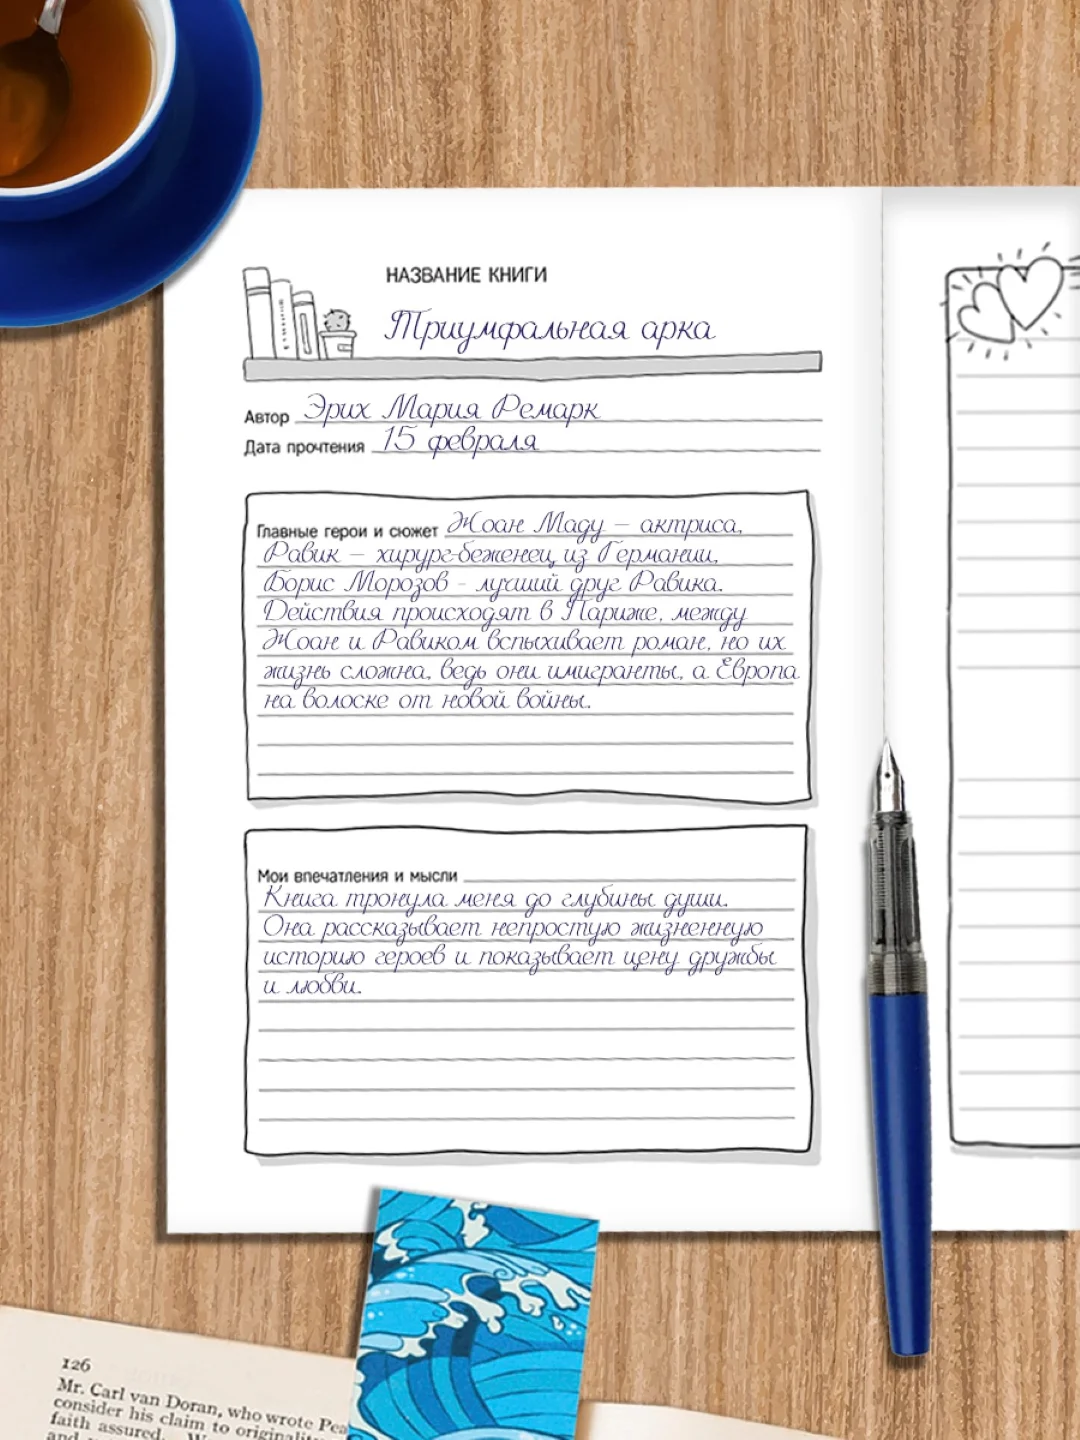 НАЗВАНИЕ КНИГИ
Триумфальная арка
Автор Эрих Мария Ремарк
Дата прочтения 15 февраля
Главные герои и сюжет Жоан Маду – актриса,
Равик – хирург-беженец из Германии,
Борис Морозов - лучший друг Равика.
Действия происходят в Париже, между
Жоан и Равиком вспыхивает роман, но их
жизнь сложна, ведь они имигранты, а Европа
на волоске от новой войны.
Мои впечатления и мысли
Книга тронула меня до глубины души.
Она рассказывает непростую жизненную
историю героев и показывает цену дружбы
и любви.
126
Mr. Carl van Doran, who wrote Pea
consider his claim to originality
faith assured.
and